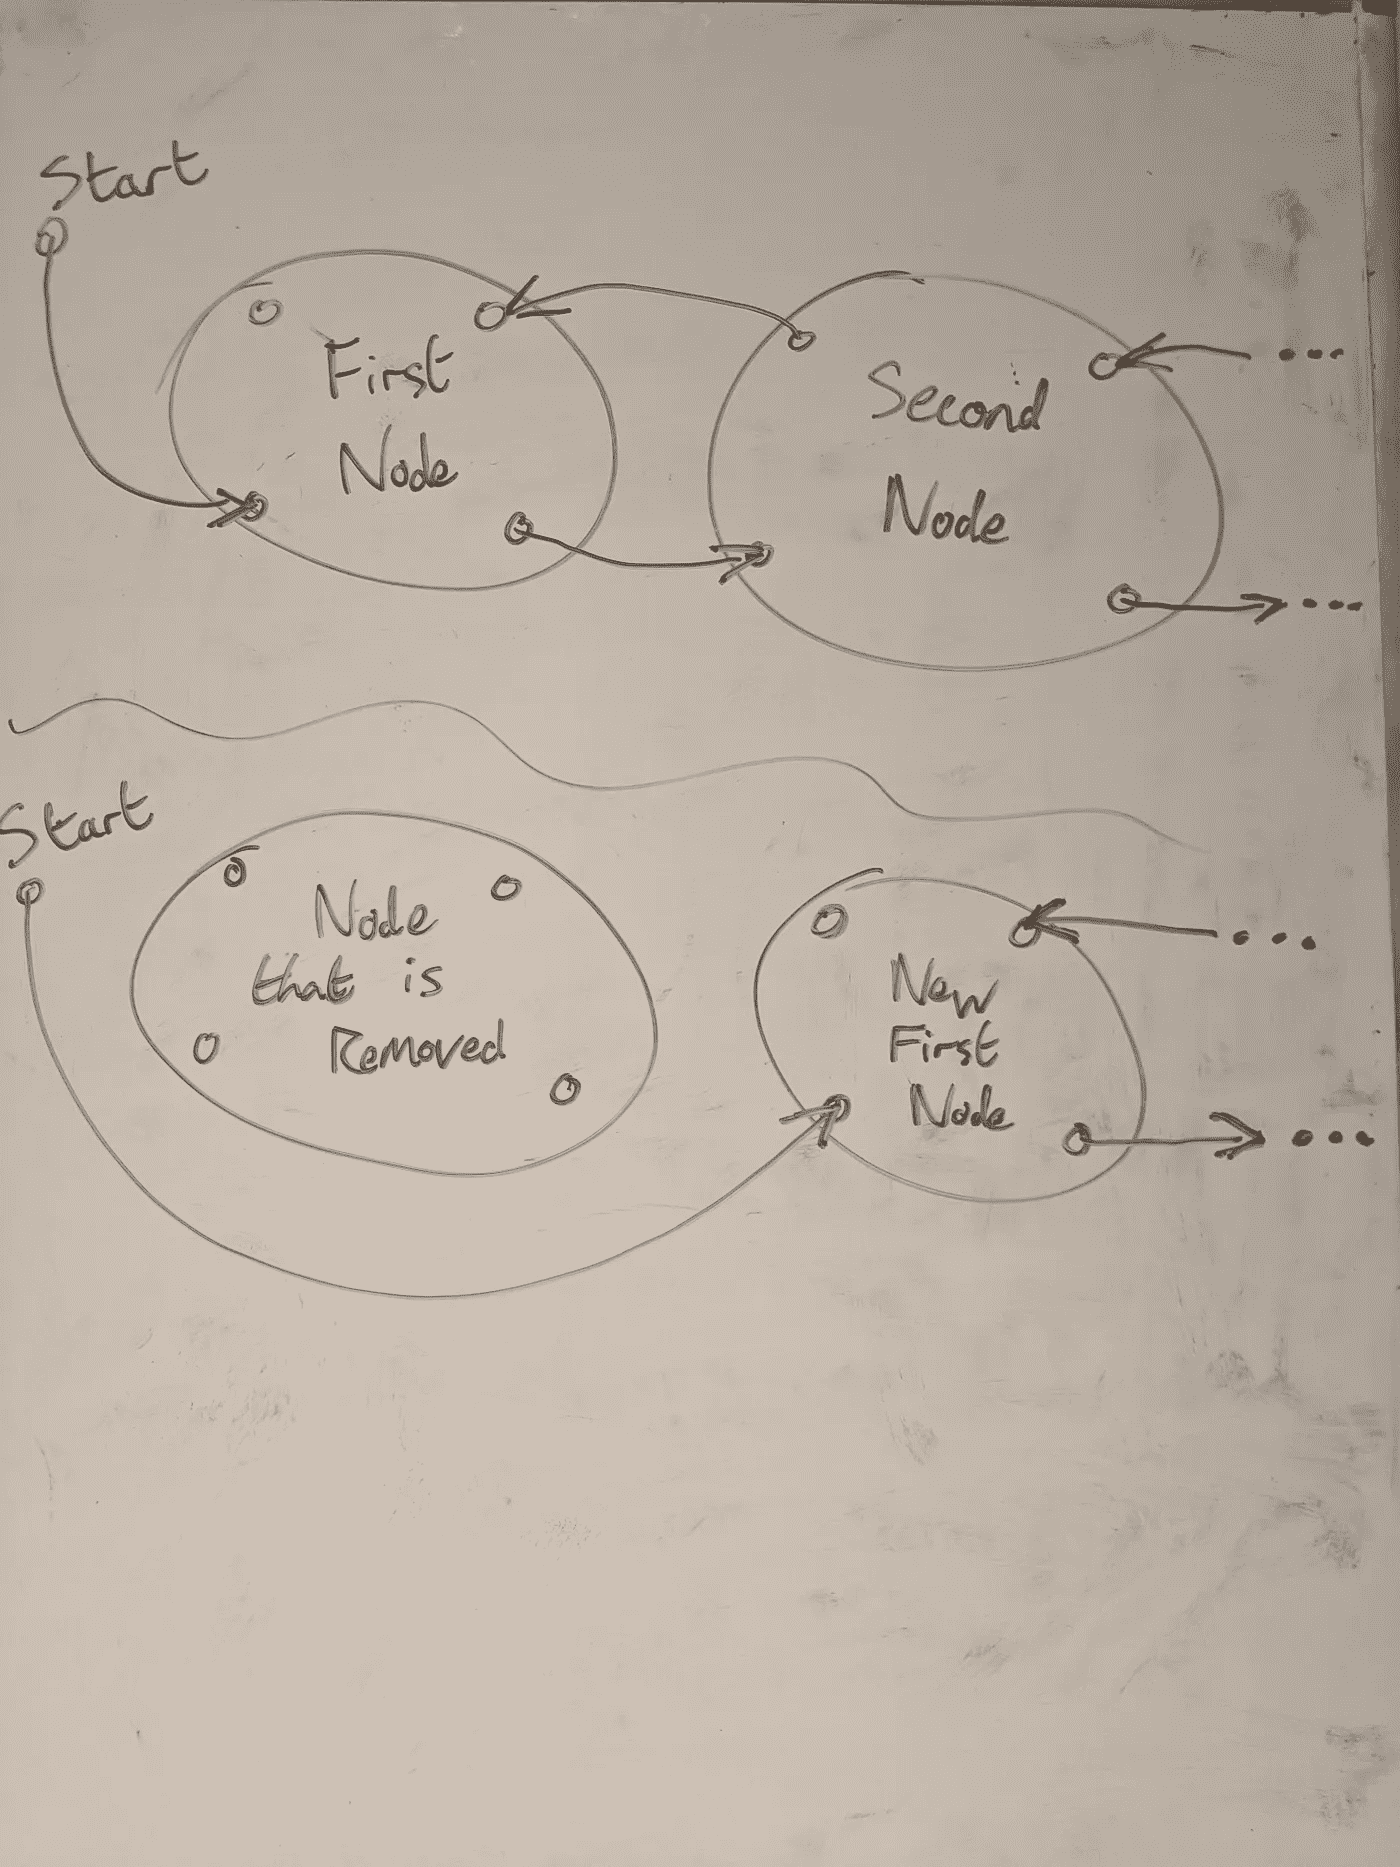 Start
First
Node
Second
Node
...
...
Start
Node
that is
Removed
New
First
Node
...
...